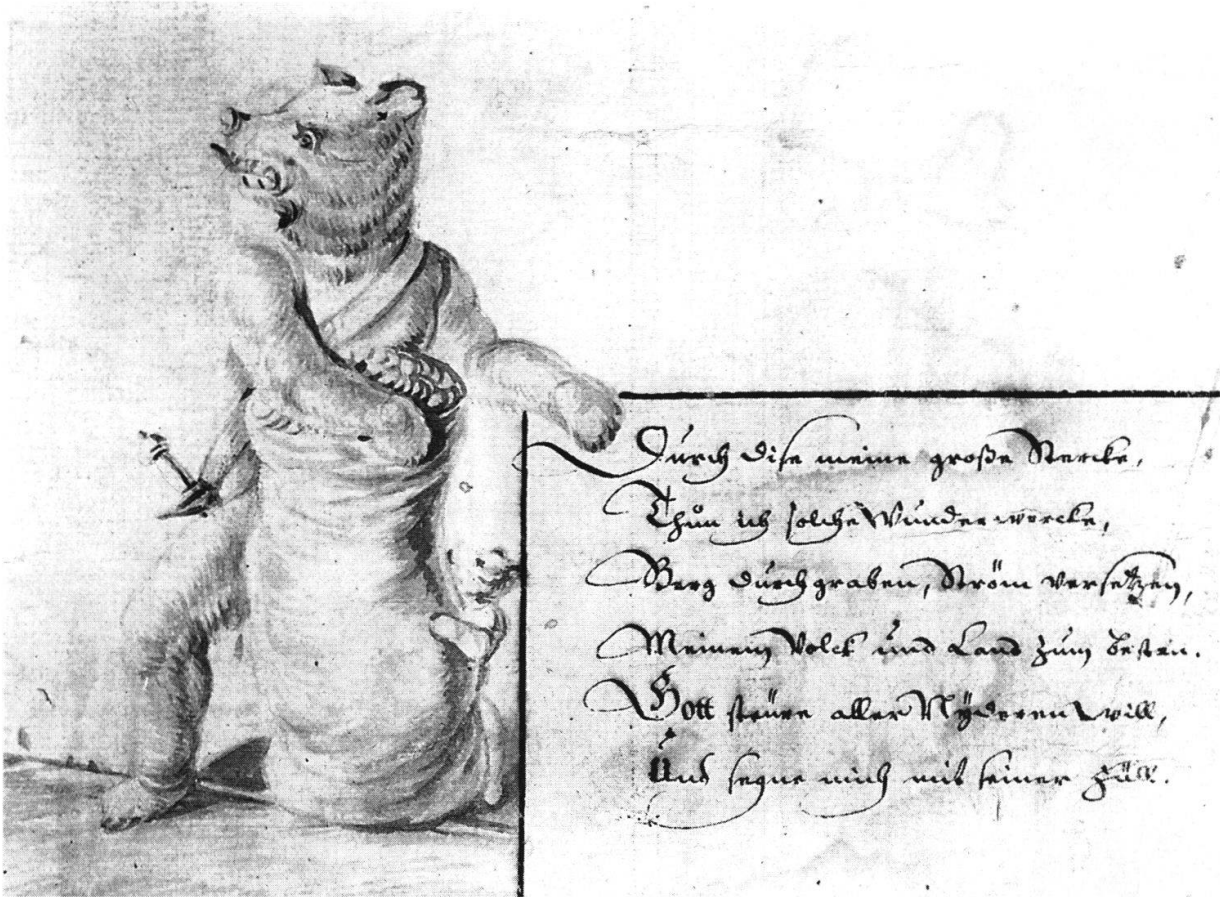 Durch dise meine große Stercke,
Thůn ich solche Wunderwercke,
Berg durchgraben, Ström versetzen,
Meinem Volck und Land zum besten.
Gott steure aller Nyderen will,
Und segne mich mit seiner Füll.